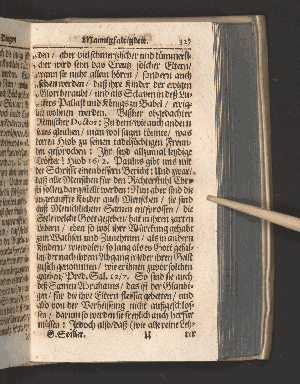 Mannigfaltigkeit. 337
den / aber viel schmertzlicher und kümmerli-
cher wird seyn das Creutz solcher Eltern/
wann sie nicht allein hören / sondern auch
sehen werden / daß ihre Kinder der ewigen
Mordtenraub/ und als Sclaven in deß Lu-
cifers Pallast und Königs zu Babel / ewig-
lich wohnen werden. Bißher obgedachter
Römischer Doctor: Zu dem wir auch anders
kues gleichen / man wol sagen könnte / was
ihren Hiob zu seinen tadelsüchtigen Freun-
den gesprochen: Ihr seyd allzumal leidige
Tröster! Hiob 16/2. Paulus gibt uns mit
der Schrifft einen bessern Bericht: Und zwar/
daß alle Menschen für den Richterstuhl Chri-
sti sollen dargestellt werden: Nun aber sind die
ungetauffte Kinder auch Menschen / sie sind
auß Menschlichem Samen entsprossen / die
Seel welche Gott gegeben/ hat in ihren zarten
Leibern / eben so wol ihre Würckung gehabt
zum Wachsen und Zunehmen / als in andern
Kindern / wiewolen/ so lang als es Gott gefal-
len/ der nach ihrem Abgang wieder ihren Geist
zu sich genommen / wie er ihnen zuvor solchen
gegeben/ Pred. Sal. 12/7. So sind sie auch
deß Samen Abrahams / das ist der Glaubi-
gen / für die ihre Eltern fleissig gebeten / und
also von der Verheissung nicht außgeschlos-
sen / darum so werden sie freylich auch herfür
müssen: Jedoch also/daß (wie alle reine Leh-
rer